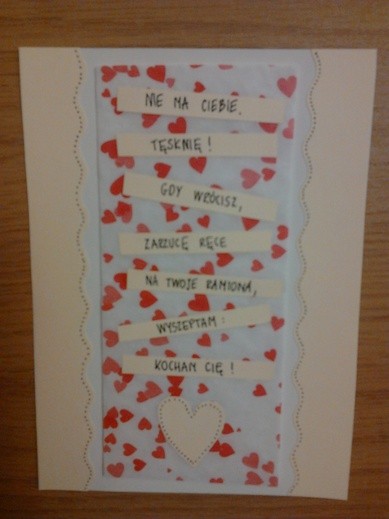 NIE MA CIEBIE.
TĘSKNIĘ!
GDY WRÓCISZ,
ZARZUCĘ RĘCE
NA TWOJE RAMIONA,
WYSZEPTAM:
KOCHAM CIĘ!